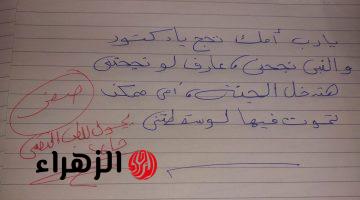 يارب أمك تنجح يا دكتور
والنبى نجحنى، عارف لو نجحتنى
هتدخل الجنة، أمى ممكن
تموت فيها لو سقطتنى
صفر
يحول للطب النفسى
الزهراء